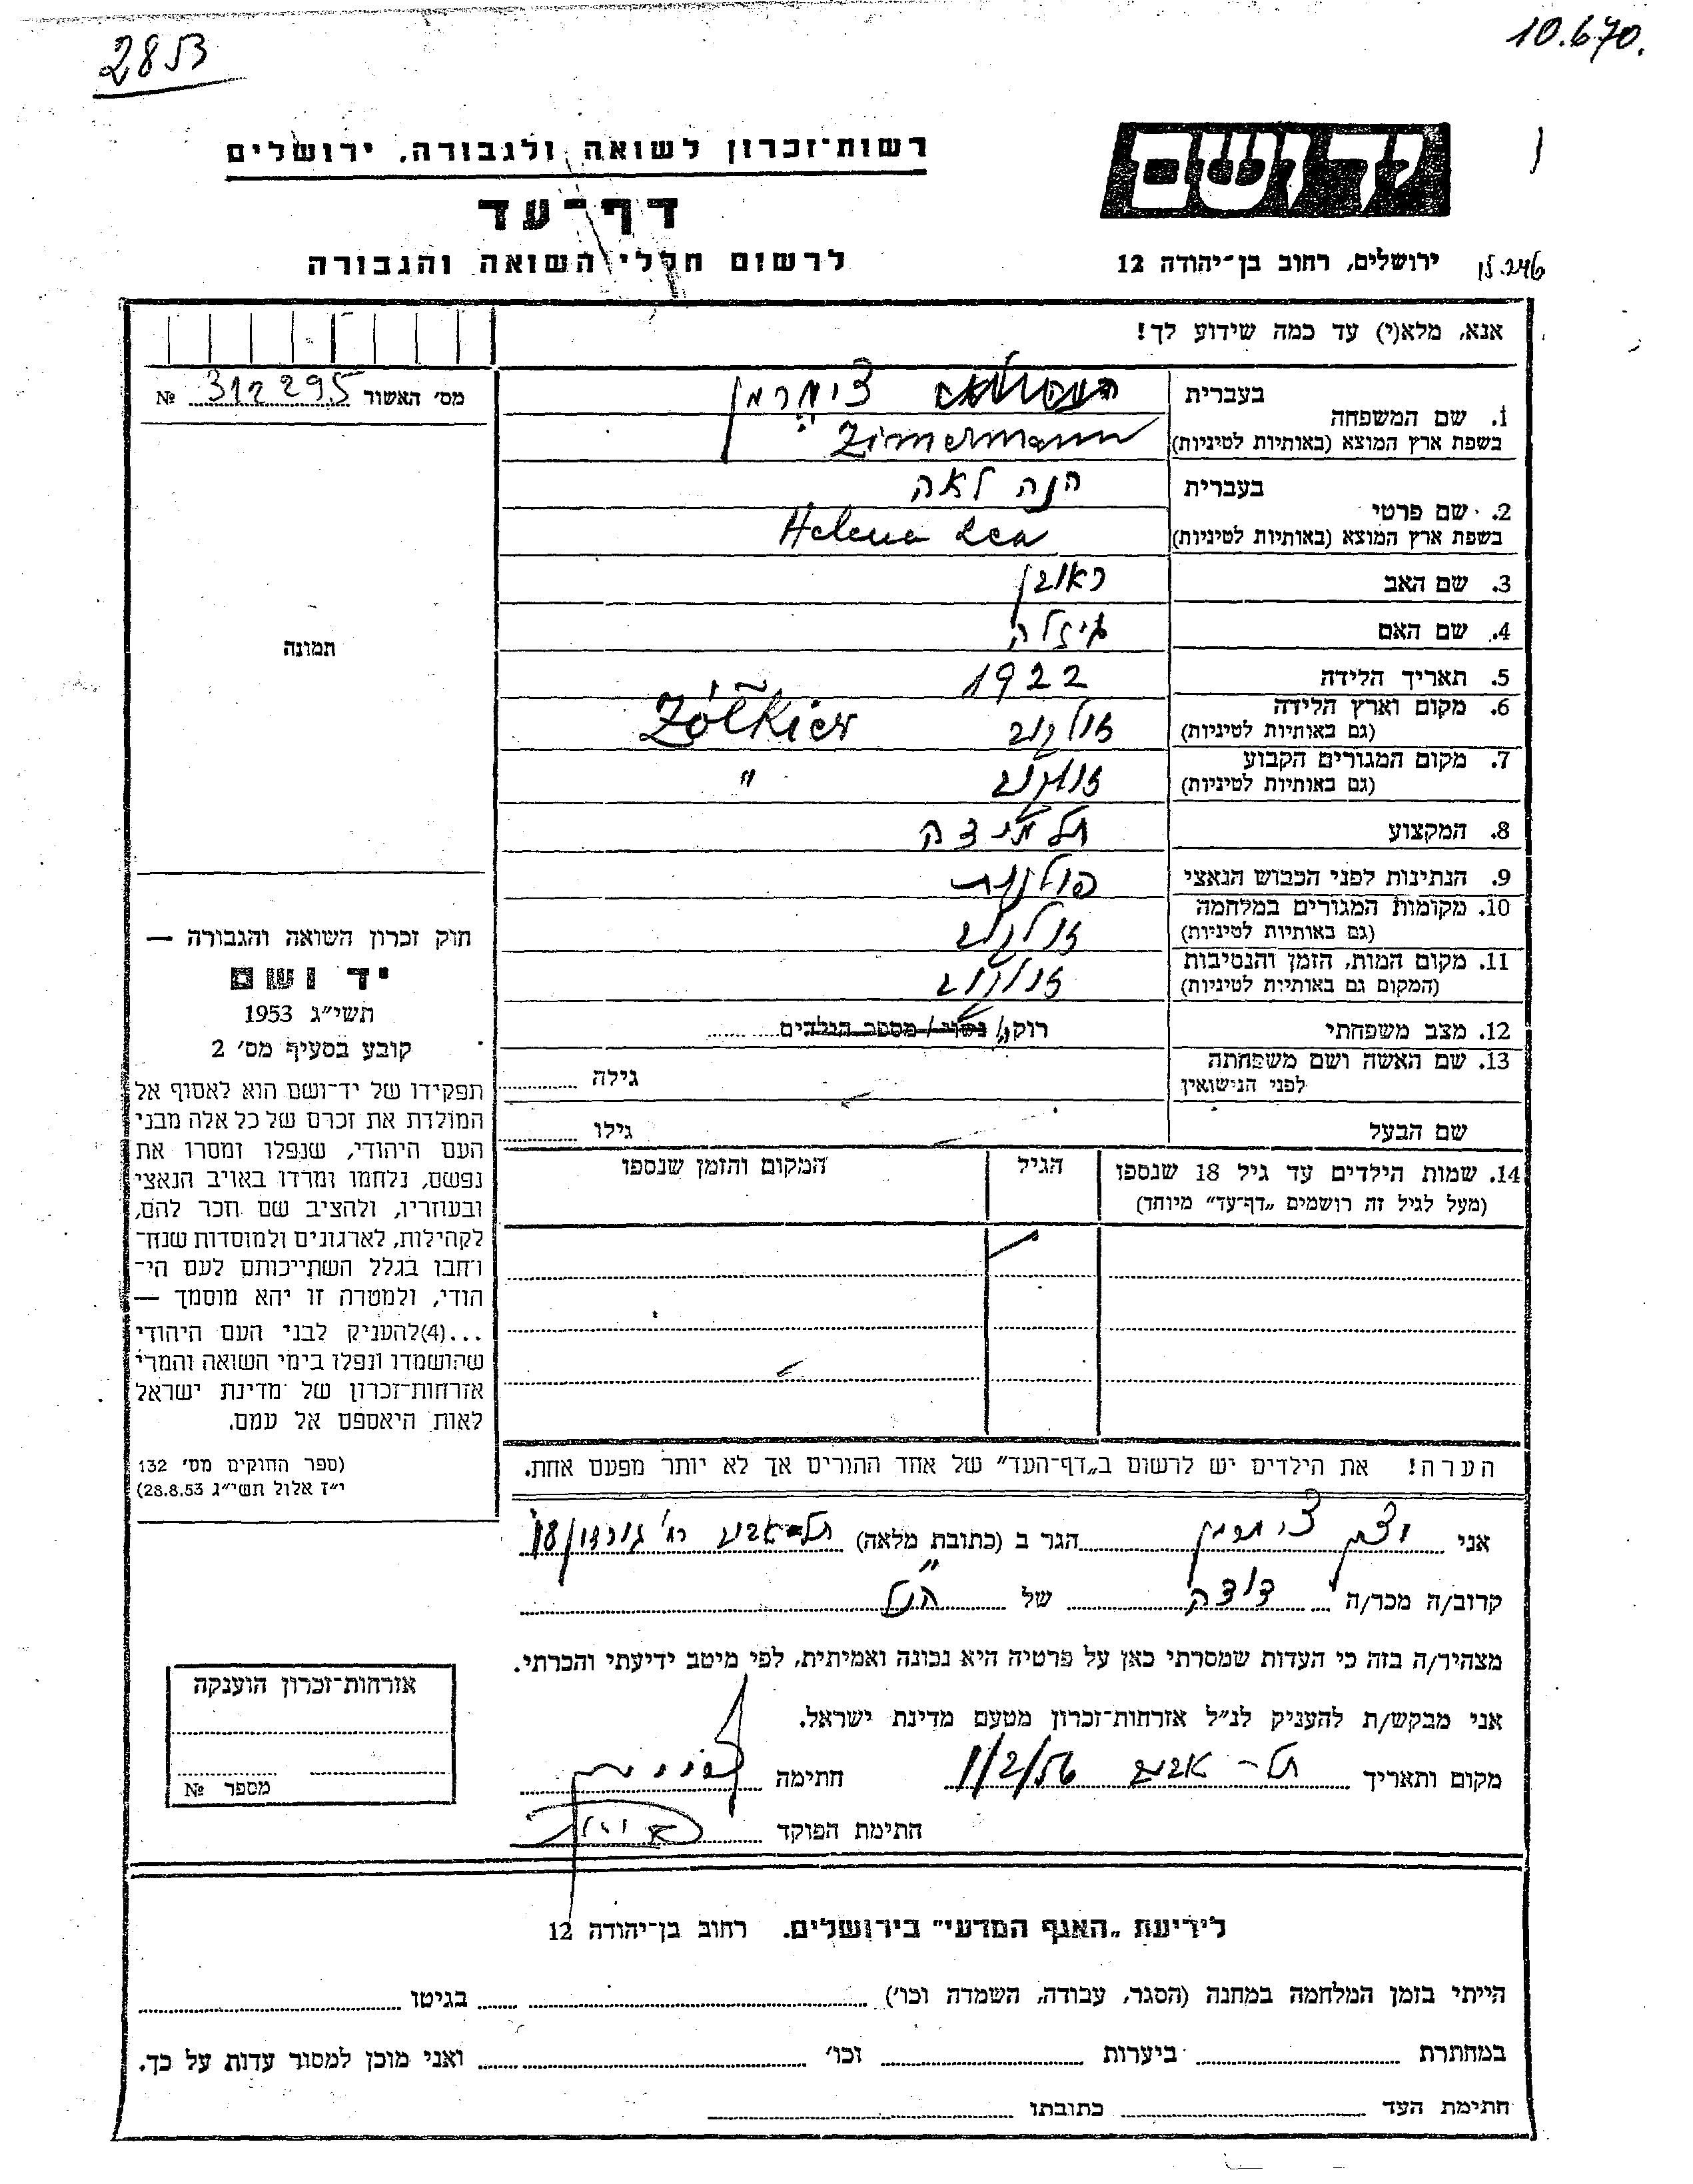 2853
10.670.
רשות־זכרון לשואה ולגבורה, ירושלים
יד ושם
דף־עד
לרשום חללי השואה והגבורה
ירושלים, רחוב בן־יהודה 12
אנא, מלא(י) עד כמה שידוע לך!
מס׳ האשור 312295 №
1. שם המשפחה
בעברית צימרמן
בשפת ארץ המוצא (באותיות לטיניות) Zimermann
2. שם פרטי
בעברית חנה לאה
בשפת ארץ המוצא (באותיות לטיניות) Helena Lea
3. שם האב ראובן
4. שם האם
5. תאריך הלידה 1922
6. מקום וארץ הלידה זולקוב Żółkiew
(גם באותיות לטיניות)
7. מקום המגורים הקבוע זולקוב "
(גם באותיות לטיניות)
8. המקצוע תלמידה
9. הנתינות לפני הכבוש הנאצי פולנית
10. מקומות המגורים במלחמה זולקוב
(גם באותיות לטיניות)
11. מקום המות, הזמן והנסיבות זולקוב
(המקום גם באותיות לטיניות)
12. מצב משפחתי רוק/ נשוי / מספר הילדים
13. שם האשה ושם משפחתה גילה
לפני הנישואין
שם הבעל גילו
14. שמות הילדים עד גיל 18 שנספו הגיל המקום והזמן שנספו
(מעל לגיל זה רושמים „דף־עד” מיוחד)
הערה! את הילדים יש לרשום ב„דף־העד” של אחד ההורים אך לא יותר מפעם אחת.
תמונה
חוק זכרון השואה והגבורה —
יד ושם
תשי״ג 1953
קובע בסעיף מס׳ 2
תפקידו של יד־ושם הוא לאסוף אל
המולדת את זכרם של כל אלה מבני
העם היהודי, שנפלו ומסרו את
נפשם, נלחמו ומרדו באויב הנאצי
ובעוזריו, ולהציב שם וזכר להם,
לקהילות, לארגונים ולמוסדות שנח־
רבו בגלל השתייכותם לעם הי־
הודי, ולמטרה זו יהא מוסמך —
...(4)להעניק לבני העם היהודי
שהושמדו ונפלו בימי השואה והמרי
אזרחות־זכרון של מדינת ישראל
לאות היאספם אל עמם.
(ספר החוקים מס׳ 132
י״ז אלול תשי״ג 28.8.53)
אני צימרמן הגר ב (כתובת מלאה) תל-אביב רח׳ גורדון
קרוב/ה מכר/ה דודה של הנ"ל
מצהיר/ה בזה כי העדות שמסרתי כאן על פרטיה היא נכונה ואמיתית, לפי מיטב ידיעתי והכרתי.
אני מבקש/ת להעניק לנ״ל אזרחות־זכרון מטעם מדינת ישראל.
מקום ותאריך תל-אביב 1/2/56 חתימה
חתימת הפוקד
אזרחות־זכרון הוענקה
מספר №
לידיעת „האגף המדעי” בירושלים. רחוב בן־יהודה 12
הייתי בזמן המלחמה במחנה (הסגר, עבודה, השמדה וכו׳) בגיטו
במחתרת ביערות וכו׳ ואני מוכן למסור עדות על כך.
חתימת העד כתובתו